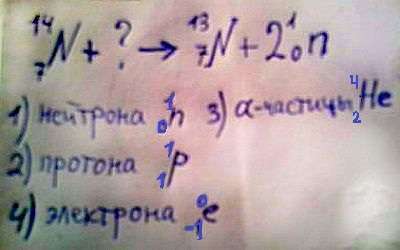 ¹⁴₇N + ? → ¹³₇N + 2¹₀n
1) нейтрона ¹₀n 3) α-частицы ⁴₂He
2) протона ¹₁p
4) электрона ⁰₋₁e